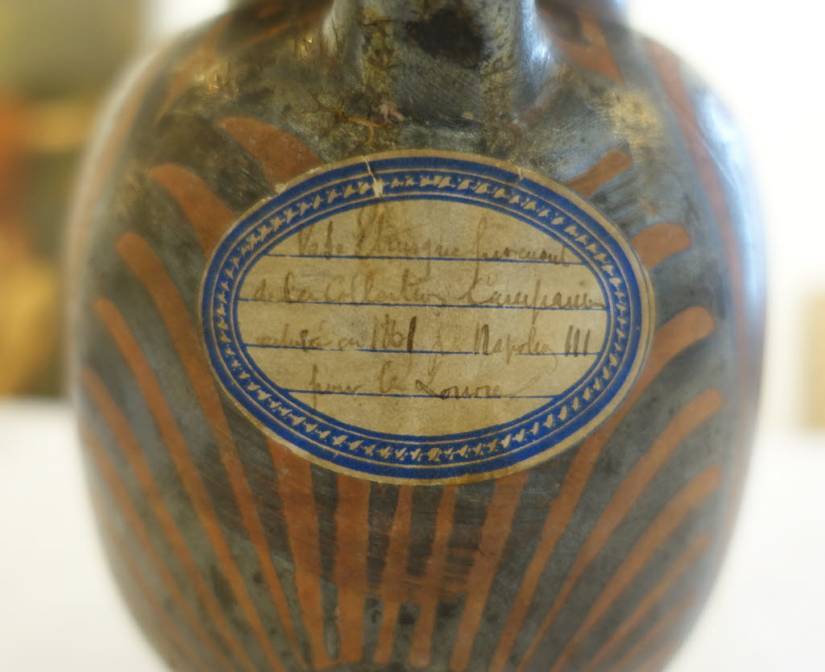 Vase Etrusque provenant
de la Collection Campana
acheté en 1861 par Napoléon III
pour le Louvre